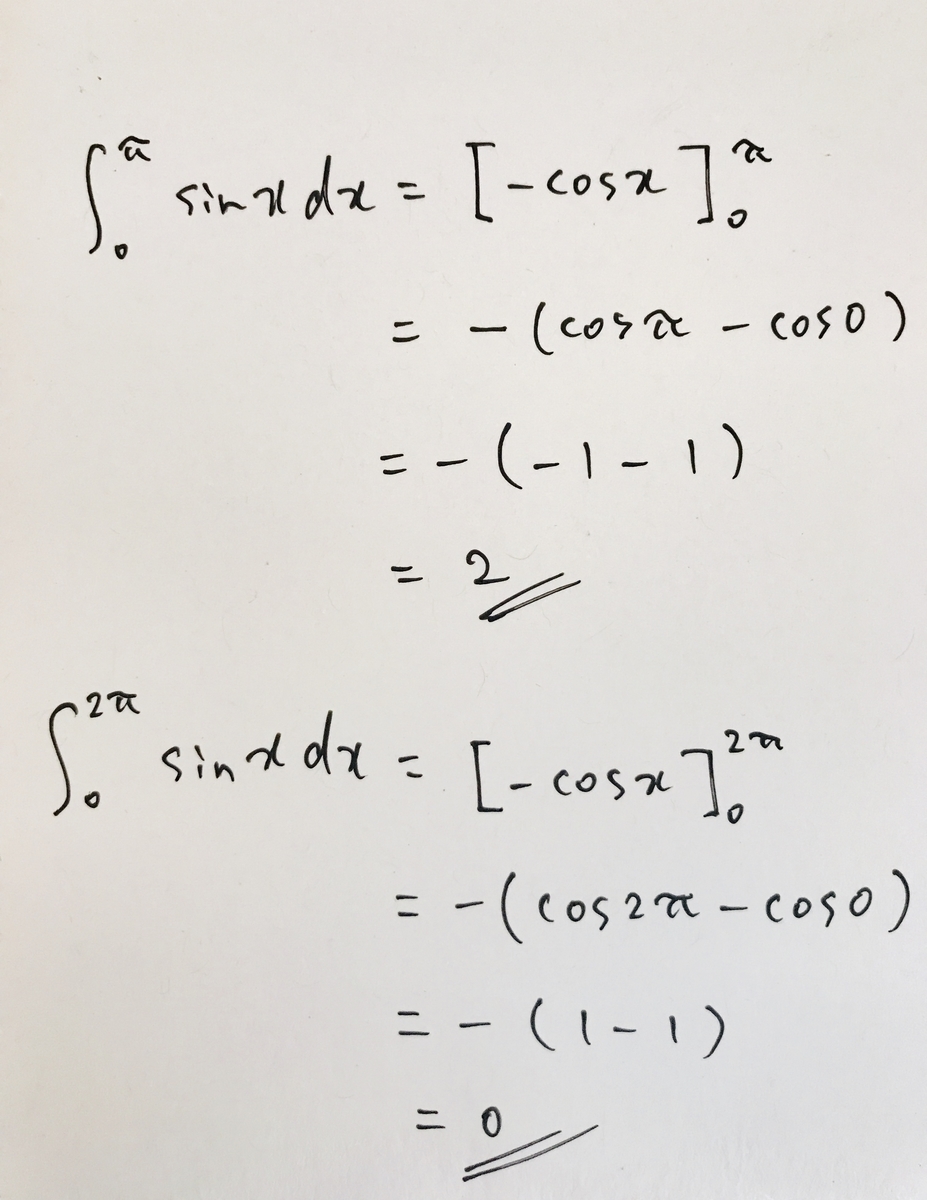 ∫₀^π sinx dx = [-cosx]₀^π
= -(cosπ - cos0)
= -(-1-1)
= 2
∫₀^2π sinx dx = [-cosx]₀^2π
= -(cos2π - cos0)
= -(1-1)
= 0